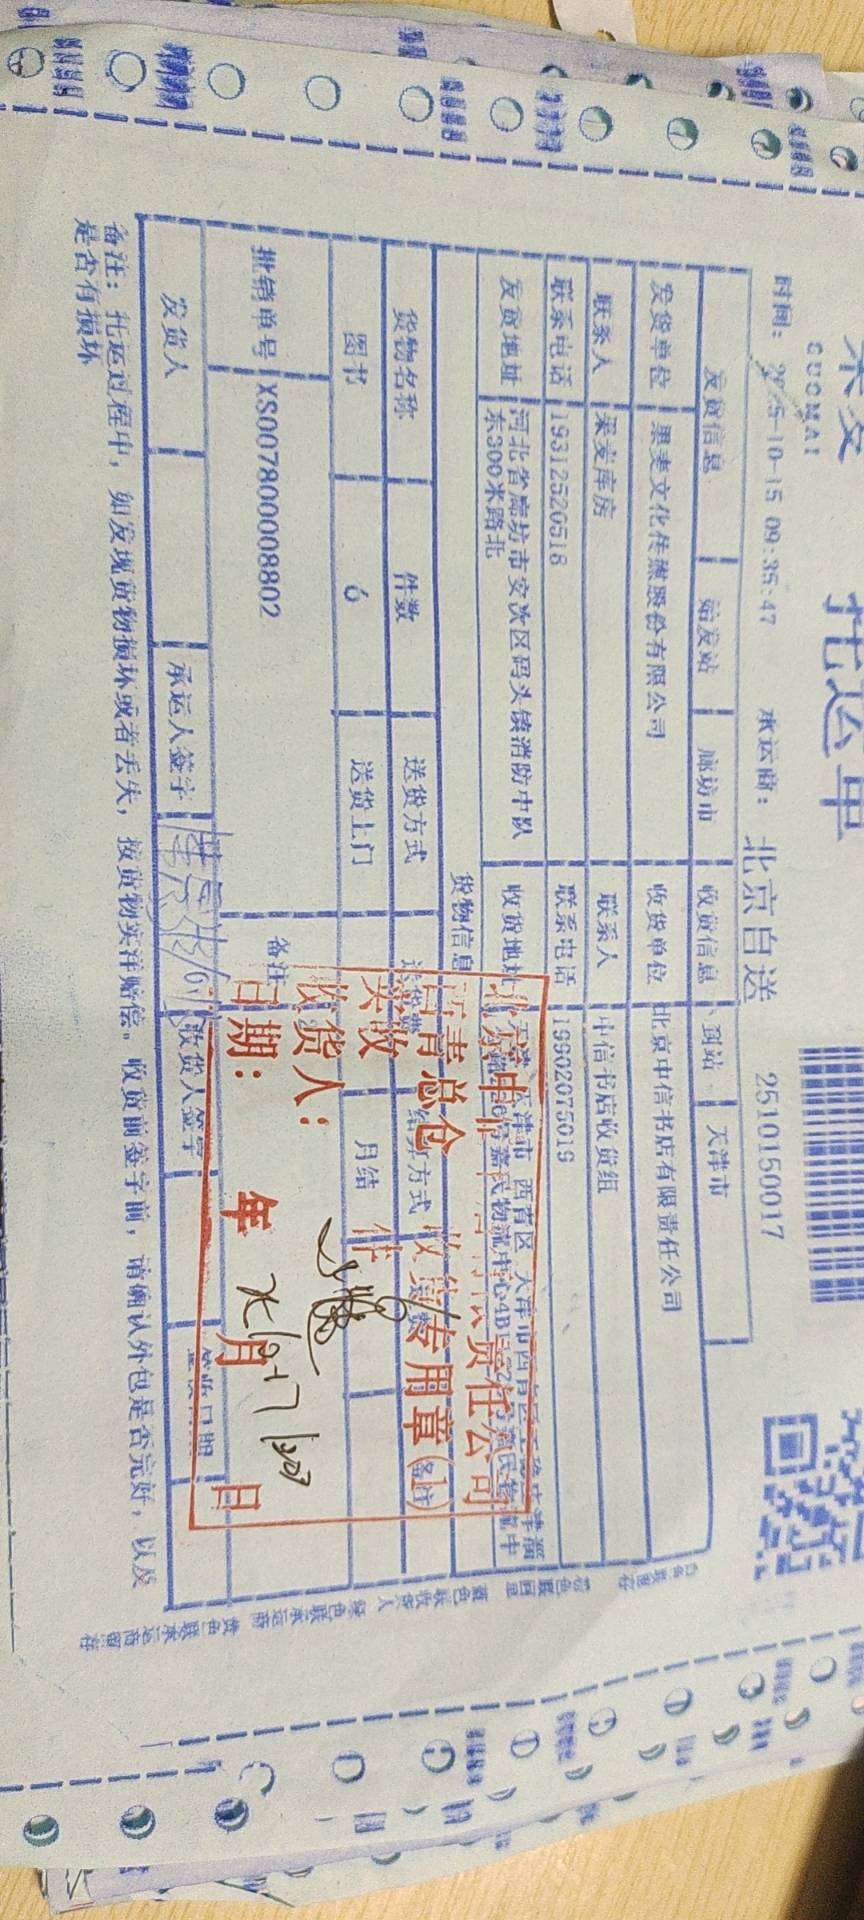 果麦
GUOMAI
托运单
时间: 2025-10-15 09:35:47 承运商: 北京自送 2510150017
发货信息 始发站 廊坊市 收货信息 到站 天津市
发货单位 果麦文化传媒股份有限公司 收货单位 北京中信书店有限责任公司
联系人 果麦库房 联系人 中信书店收货组
联系电话 19312520518 联系电话 19902075019
发货地址 河北省廊坊市安次区码头镇消防中队东300米路北 收货地址 天津市 西青区
货物信息
货物名称 件数 送货方式 结算方式 备注
图书 6 送货上门 月结
批销单号 XS007800008802 备注
发货人 承运人签字 收货人签字 签收日期
备注: 托运过程中, 如发现货物损坏或者丢失, 按货物实洋赔偿。收货前签字前, 请确认外包是否完好, 以及
是否有损坏
西青总仓 收货专用章(1)
实收 件
收货人:
日期: 年 月 日